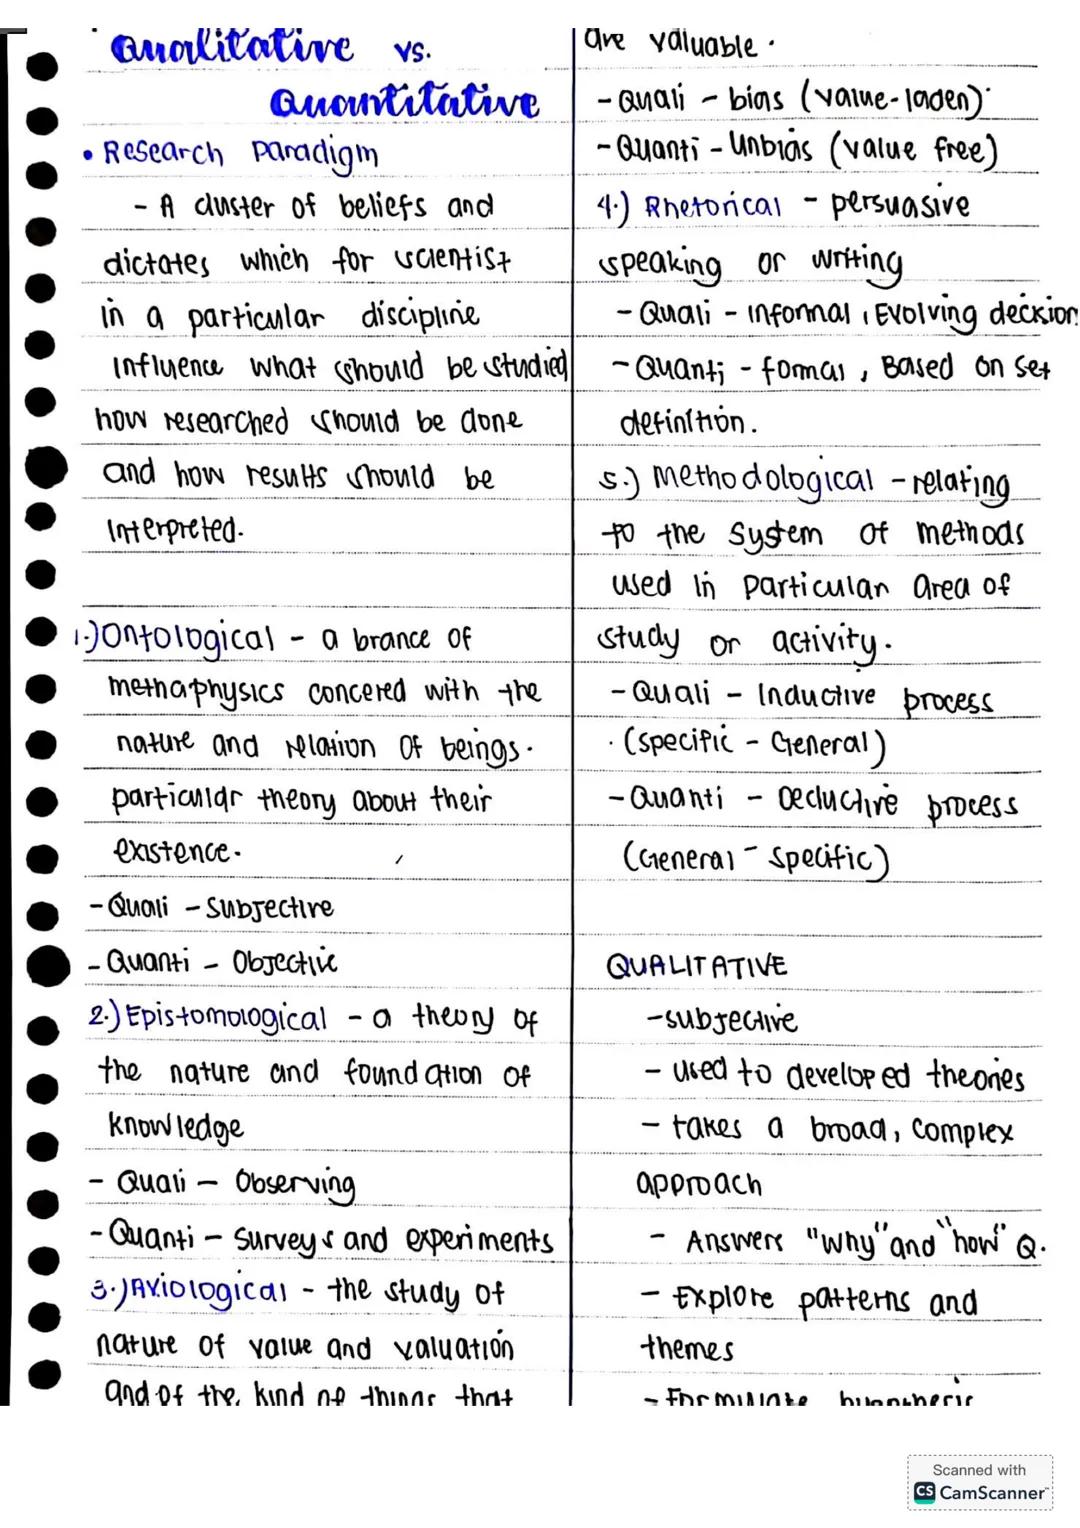 Qualitative vs.
Quantitative
• Research Paradigm
- A cluster of beliefs and
dictates which for scientist
in a particular discipline
influence what should be studied
how researched should be done
and how results should be
interpreted.
1.) Ontological - a brance of
methaphysics concered with the
nature and relation of beings.
particular theory about their
existence.
- Quali - Subjective
- Quanti - Objective
2.) Epistomological - a theory of
the nature and foundation of
knowledge
- Quali - Observing
- Quanti - Surveys and experiments
3.) Axiological - the study of
nature of value and valuation
and of the kind of things that
are valuable.
- Quali - bias (value-laden)
- Quanti - Unbias (value free)
4.) Rhetorical - persuasive
speaking or writing
- Quali - informal, Evolving decision
- Quanti - formal, Based on set
definition.
5.) Methodological - relating
to the system of methods
used in particular area of
study or activity.
- Quali - Inductive process
(specific - General)
- Quanti - Deductive process
(General - specific)
QUALITATIVE
- subjective
- used to developed theories
- takes a broad, complex
approach
- Answers "why" and "how" Q.
- Explore patterns and
themes
- Formulate hypothesis
Scanned with
CS CamScanner